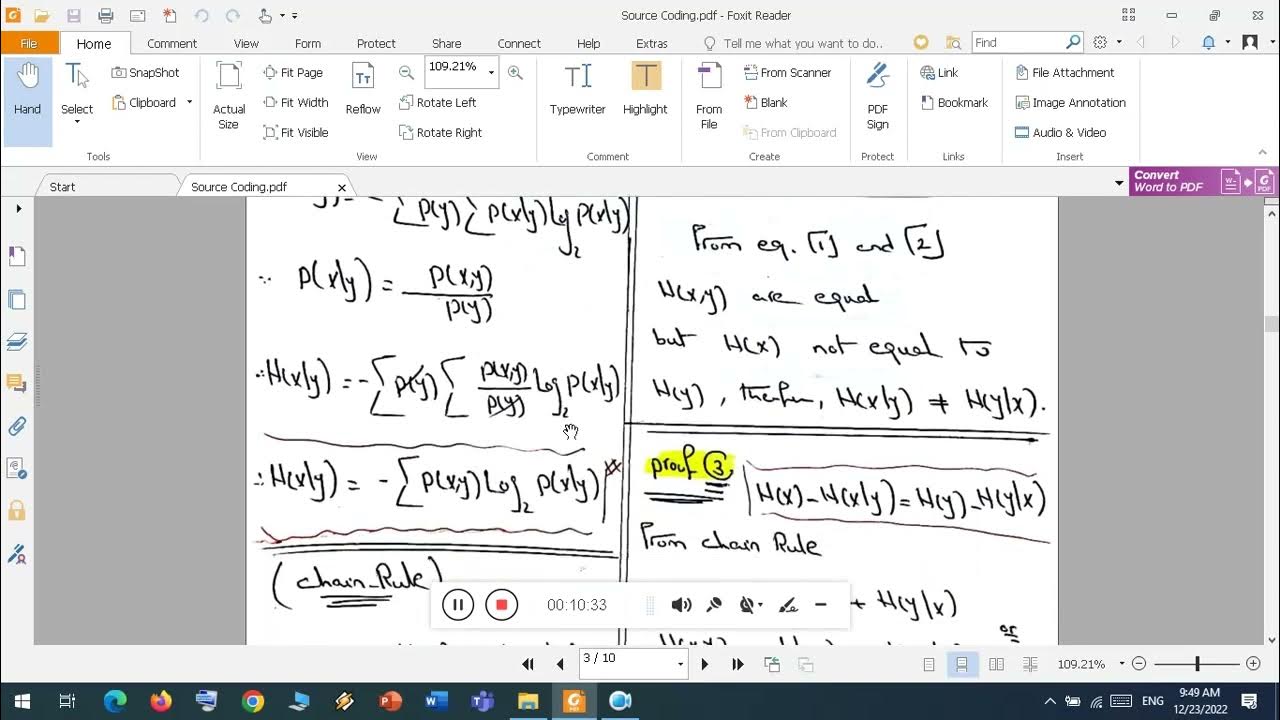 Source Coding.pdf - Foxit Reader
File Home Comment View Form Protect Share Connect Help Extras Tell me what you want to do.. Find
Hand
Select
SnapShot
Clipboard
Actual Size
Fit Page
Fit Width
Fit Visible
Reflow
109.21%
Rotate Left
Rotate Right
Typewriter
Highlight
From File
From Scanner
Blank
From Clipboard
PDF Sign
Link
Bookmark
File Attachment
Image Annotation
Audio & Video
Tools View Comment Create Protect Links Insert
Start Source Coding.pdf
Convert
Word to PDF
∑ P(y) ∑ P(x|y) log₂ P(x|y)
∵ P(x|y) = P(x,y) / P(y)
∴ H(x|y) = - ∑ P(y) ∑ P(x,y)/P(y) Log₂ P(x|y)
∴ H(x|y) = - ∑ P(x,y) Log₂ P(x|y)
(chain-Rule)
From eq. [1] and [2]
H(x,y) are equal
but H(x) not equal to
H(y), therfore, H(x|y) ≠ H(y|x).
proof ③ H(x) - H(x|y) = H(y) - H(y|x)
From chain Rule
+ H(y|x)
or
00:10:33
3 / 10
109.21%
ENG
9:49 AM
12/23/2022